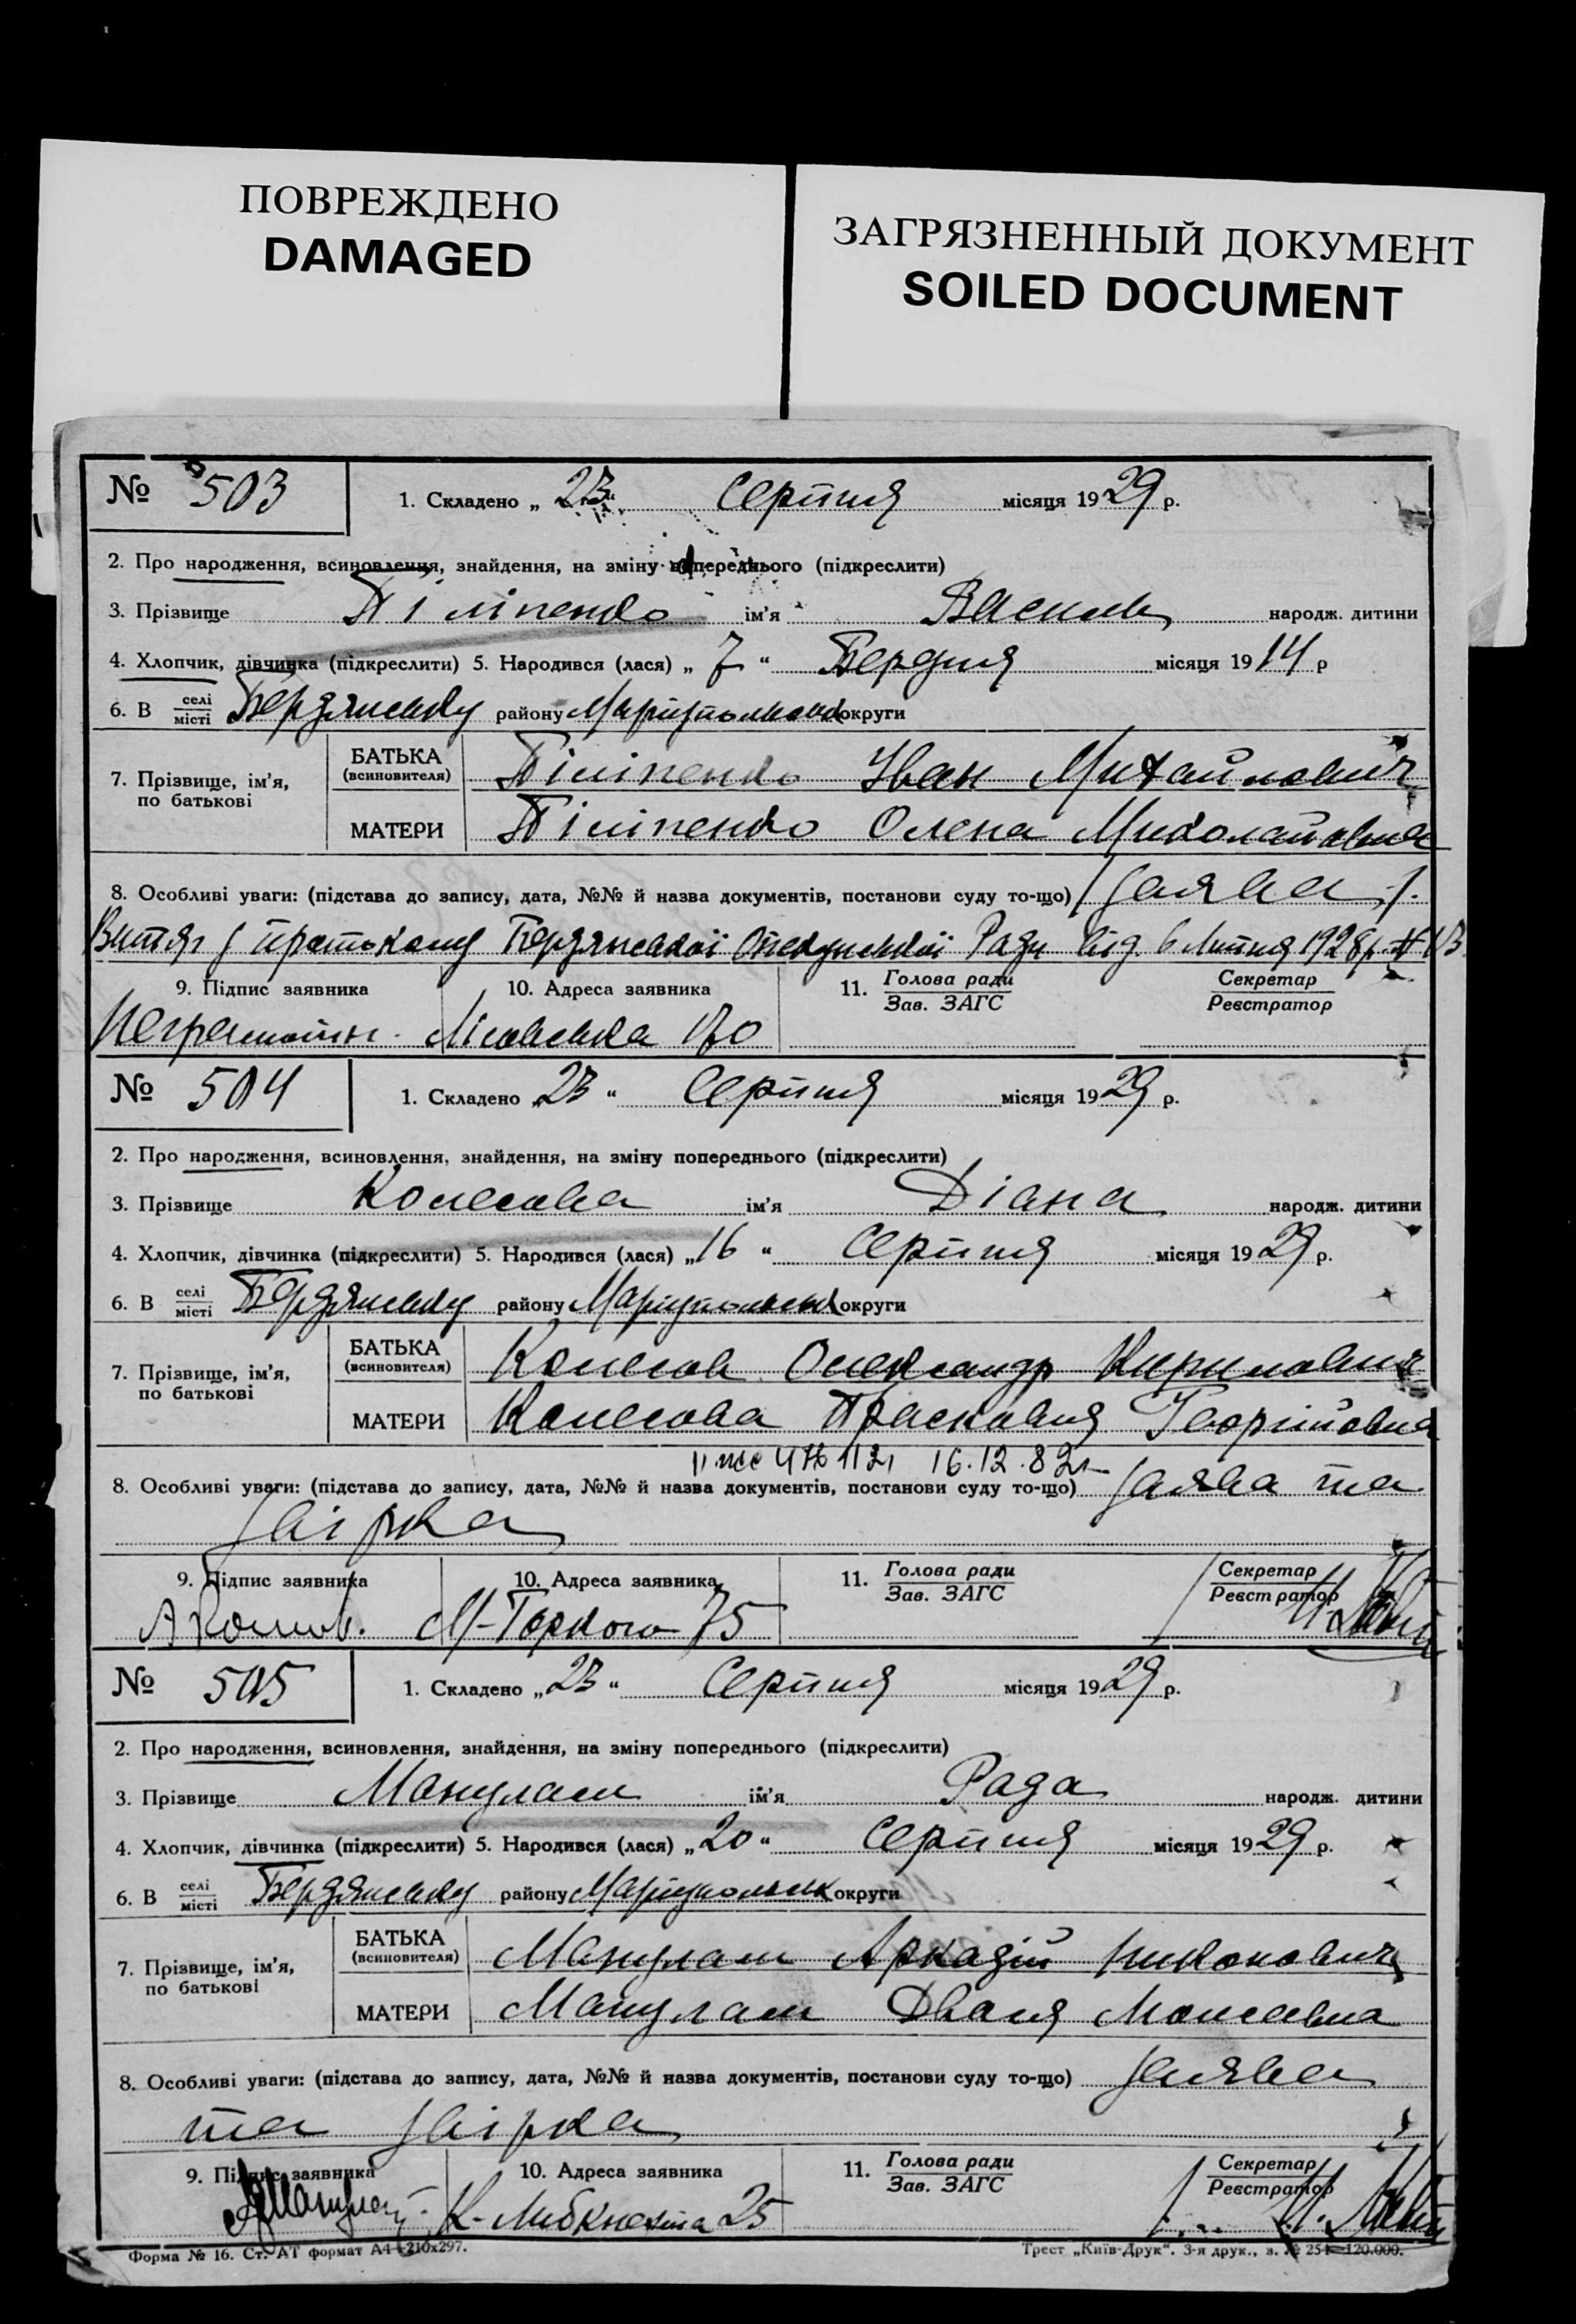 ПОВРЕЖДЕНО
DAMAGED
ЗАГРЯЗНЕННЫЙ ДОКУМЕНТ
SOILED DOCUMENT
№ 503 1. Складено „ 23 “ Серпня місяця 1929 р.
2. Про народження, всиновлення, знайдення, на зміну попереднього (підкреслити)
3. Прізвище Піліпенко ім’я Василь народж. дитини
4. Хлопчик, дівчинка (підкреслити) 5. Народився (лася) „ 7 “ Березня місяця 1914 р
6. В селі/місті Бердянську району Маріупольської округи
7. Прізвище, ім’я, по батькові
БАТЬКА (всиновителя) Піліпенко Іван Михайлович
МАТЕРИ Піліпенко Олена Миколаївна
8. Особливі уваги: (підстава до запису, дата, №№ й назва документів, постанови суду то-що) Заява
Витяг з протокому Бердянської Опікунської Ради від 6 Липня 1928 р. №
9. Підпис заявника 10. Адреса заявника 11. Голова ради/Зав. ЗАГС Секретар/Реєстратор
Неграмотн. Лісовська 170
№ 504 1. Складено „ 23 “ Серпня місяця 1929 р.
2. Про народження, всиновлення, знайдення, на зміну попереднього (підкреслити)
3. Прізвище Колесова ім’я Діана народж. дитини
4. Хлопчик, дівчинка (підкреслити) 5. Народився (лася) „ 16 “ Серпня місяця 1929 р.
6. В селі/місті Бердянську району Маріупольськ округи
7. Прізвище, ім’я, по батькові
БАТЬКА (всиновителя) Колесов Олександр Кирилович
МАТЕРИ Колесова Прасковья Георгіївна
16.12.82
8. Особливі уваги: (підстава до запису, дата, №№ й назва документів, постанови суду то-що) Заява та
Звірка
9. Підпис заявника 10. Адреса заявника 11. Голова ради/Зав. ЗАГС Секретар/Реєстратор
М-Горкого 75
№ 505 1. Складено „ 23 “ Серпня місяця 1929 р.
2. Про народження, всиновлення, знайдення, на зміну попереднього (підкреслити)
3. Прізвище Манулам ім’я Рада народж. дитини
4. Хлопчик, дівчинка (підкреслити) 5. Народився (лася) „ 20 “ Серпня місяця 1929 р.
6. В селі/місті Бердянську району Маріупольськ округи
7. Прізвище, ім’я, по батькові
БАТЬКА (всиновителя) Манулам Аркадій
МАТЕРИ Манулам Двася Моисеевна
8. Особливі уваги: (підстава до запису, дата, №№ й назва документів, постанови суду то-що) Заява
та Звірка
9. Підпис заявника 10. Адреса заявника 11. Голова ради/Зав. ЗАГС Секретар/Реєстратор
К-Либкнехта 25
Форма № 16. Ст. АТ формат А4—210x297. Трест „Київ-Друк“. 3-я друк., з. № 251—120.000.